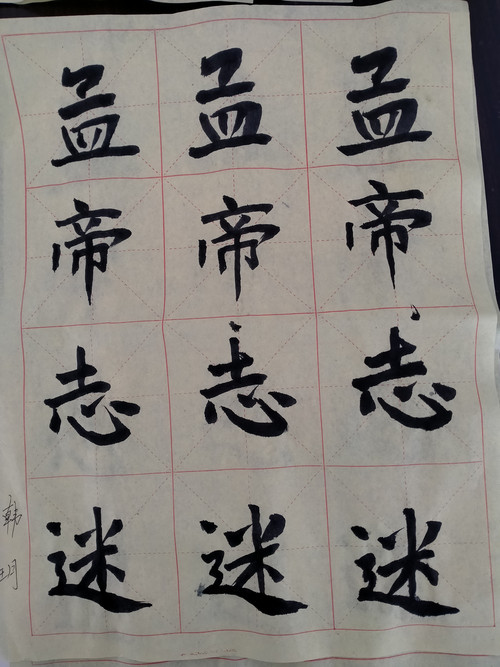 孟 孟 孟
帝 帝 帝
志 志 志
迷 迷 迷
韩玥